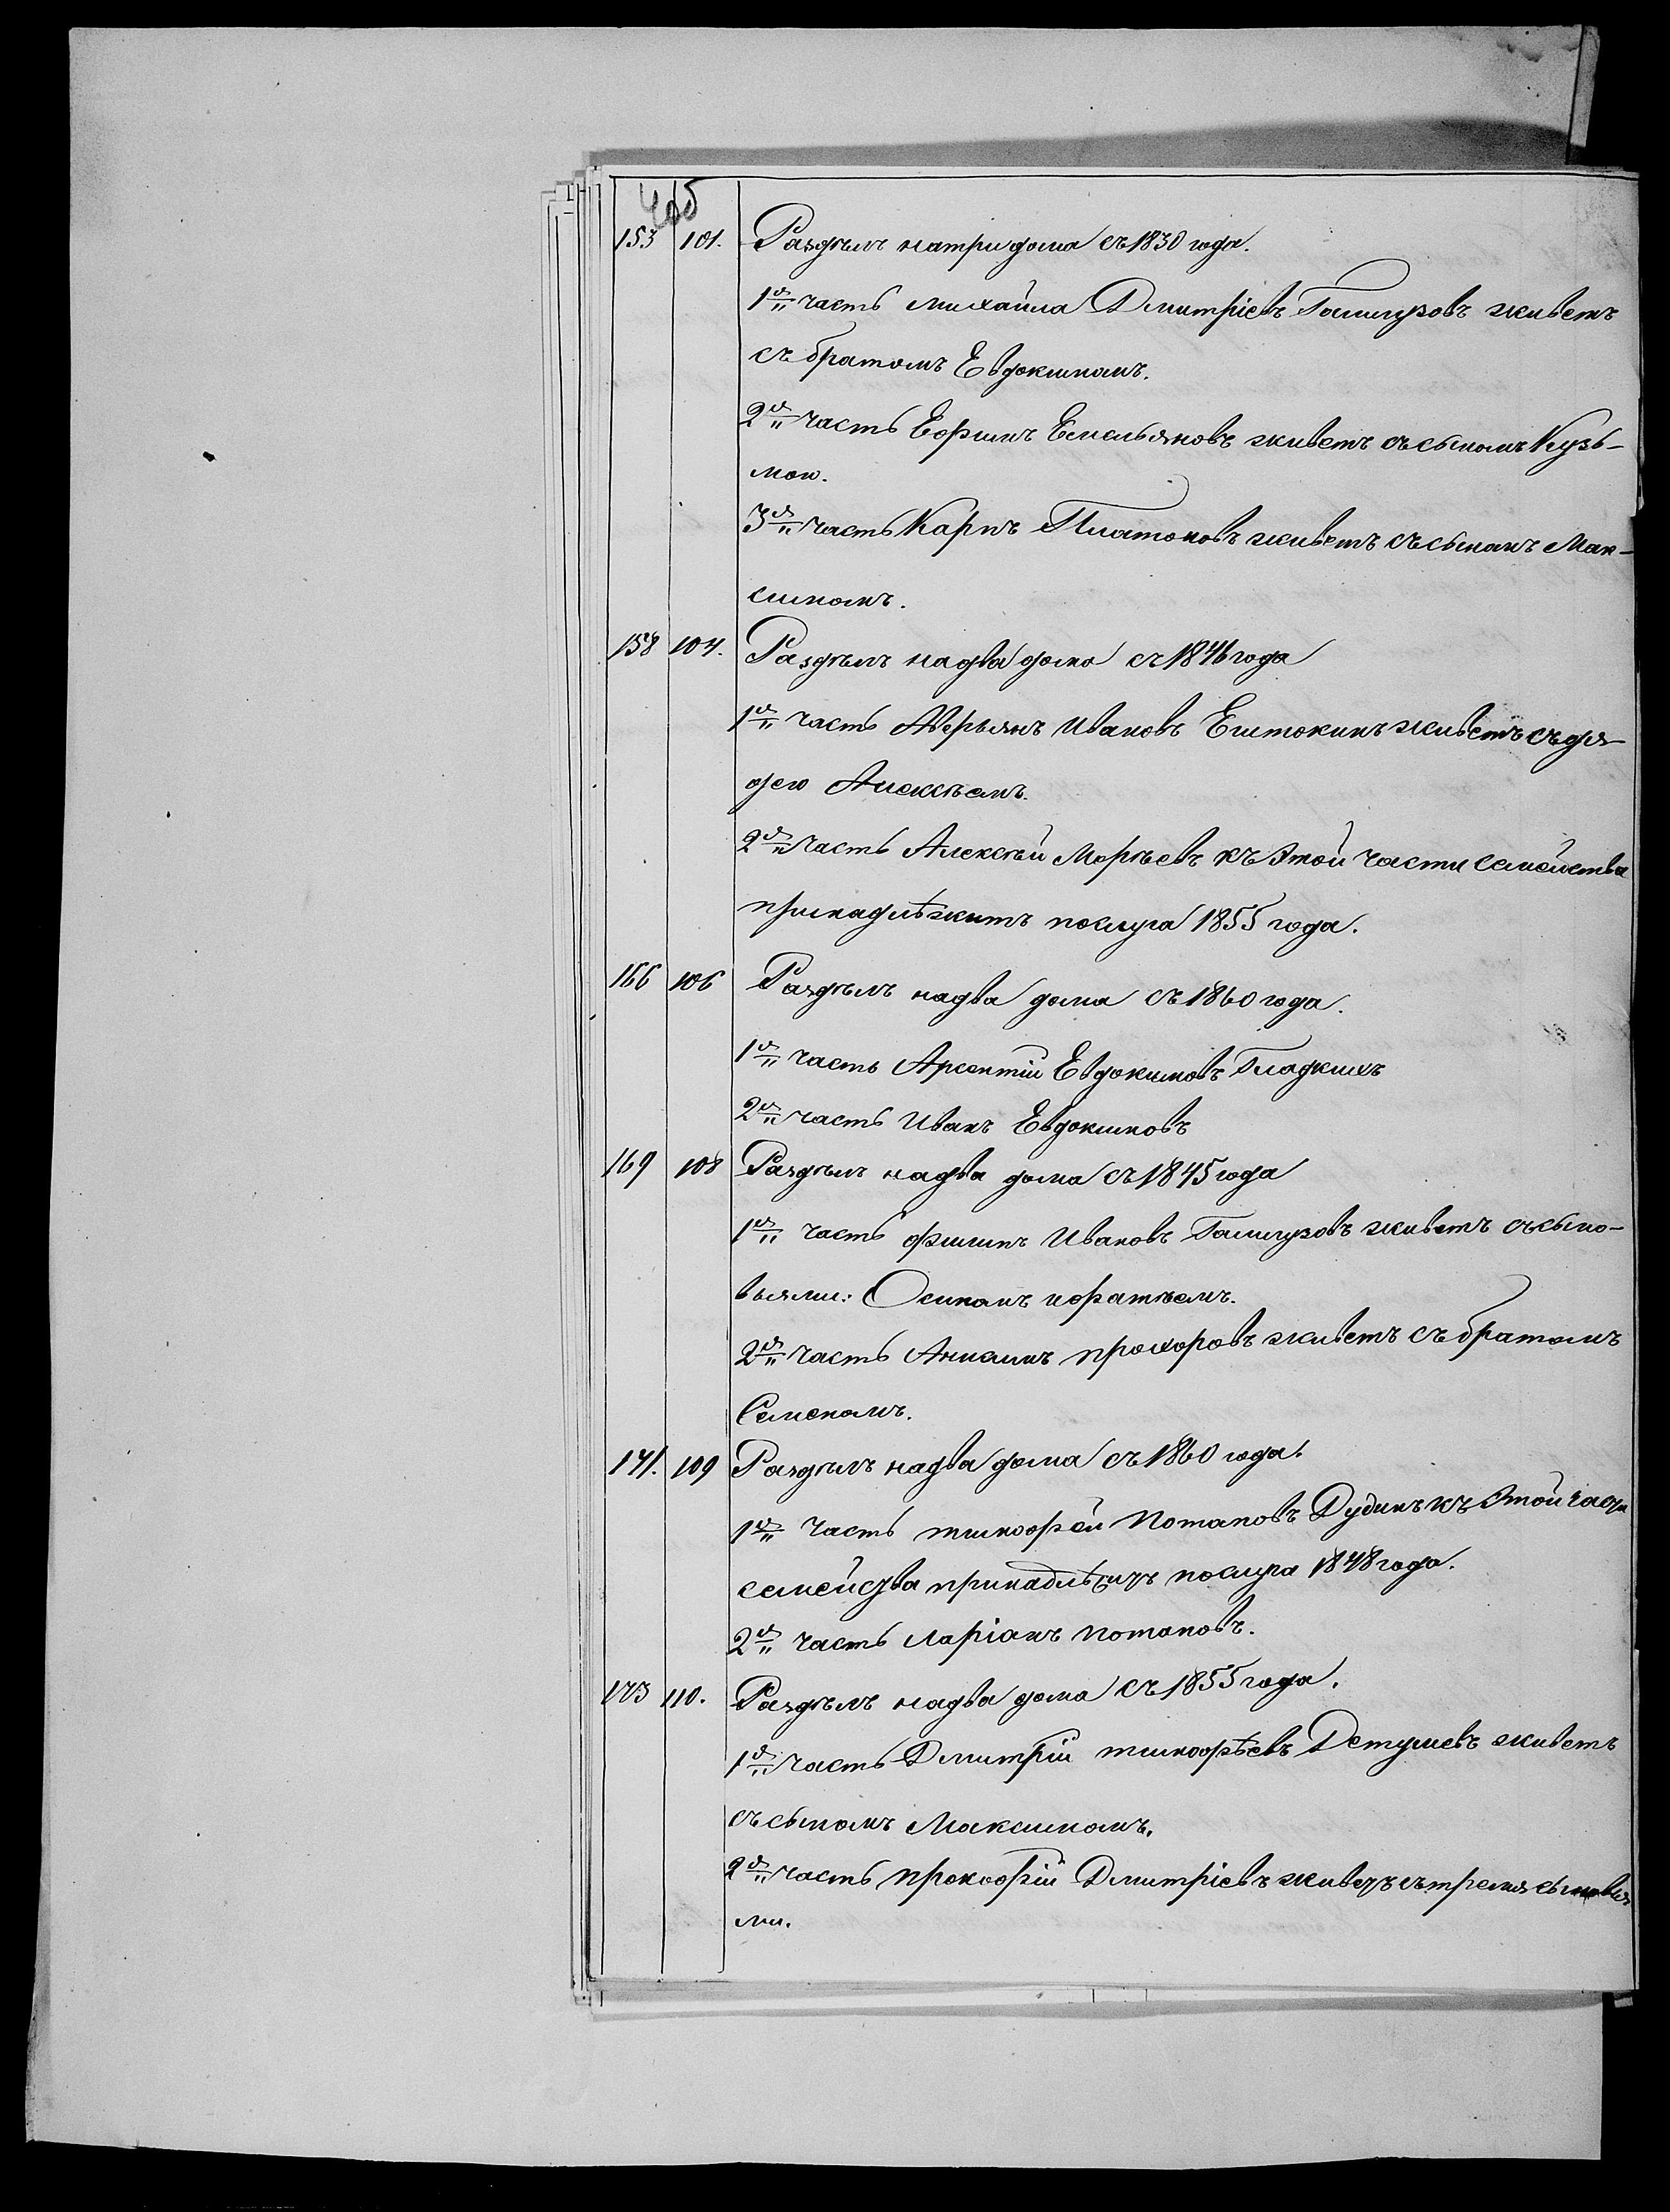 4об
153 101. Раздѣлъ натри дома съ 1830 года.
1я часть Михайла Дмитріевъ живетъ
съ братомъ Евдокимомъ.
2я часть Ефимъ Емельяновъ живетъ съ сыномъ Кузь-
мою.
3я часть Карпъ Платоновъ живетъ съ сыномъ Мак-
симомъ.
158 104. Раздѣлъ надва дома съ 1846 года
1я часть Аверьянъ Ивановъ живетъ съ дя-
дею Алексѣемъ.
2я часть Алексѣй къ этой части семейства
принадлѣжитъ 1855 года.
166 106 Раздѣлъ надва дома съ 1860 года.
1я часть Арсентій Евдокимовъ Гладкихъ
2я часть Иванъ Евдокимовъ
169 108 Раздѣлъ надва дома съ 1845 года
1я часть Филипъ Ивановъ живетъ съ сыно-
вьями: Осипомъ
2я часть Прохоровъ живетъ съ братомъ
Семеномъ.
171. 109 Раздѣлъ надва дома съ 1860 года.
1я часть Тимофей Потаповъ Дудинъ къ этой части
семейства принадлѣжитъ 1848 года.
2я часть Ларіонъ Потаповъ.
173 110. Раздѣлъ надва дома съ 1855 года.
1я часть Дмитрій Тимофѣевъ Детушевъ живетъ
съ сыномъ Максимомъ.
2я часть Прокофій Дмитріевъ живетъ стремя сыновья
ми.